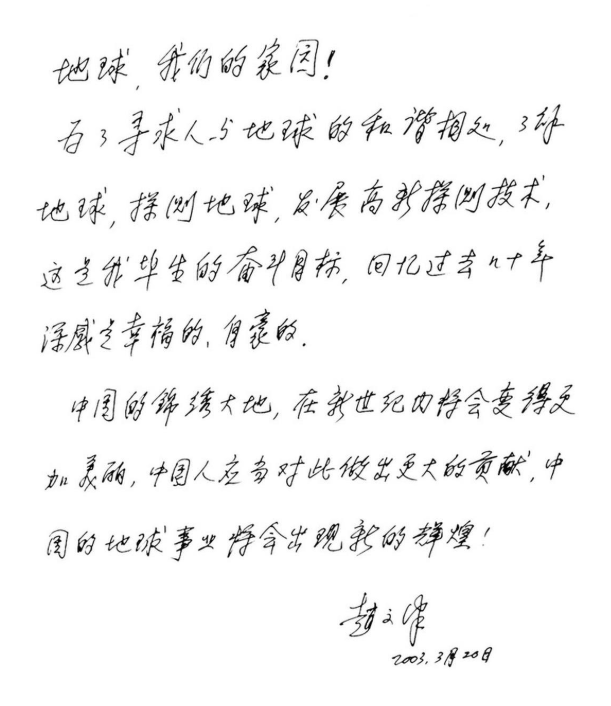 地球，我们的家园！
为了寻求人与地球的和谐相处，了解
地球，探测地球，发展高新探测技术，
这是我毕生的奋斗目标，回忆过去几十年
深感是幸福的、自豪的．
中国的锦绣大地，在新世纪内将会变得更
加美丽，中国人应当对此做出更大的贡献，中
国的地球事业将会出现新的辉煌！
赵文津
2003.3月20日